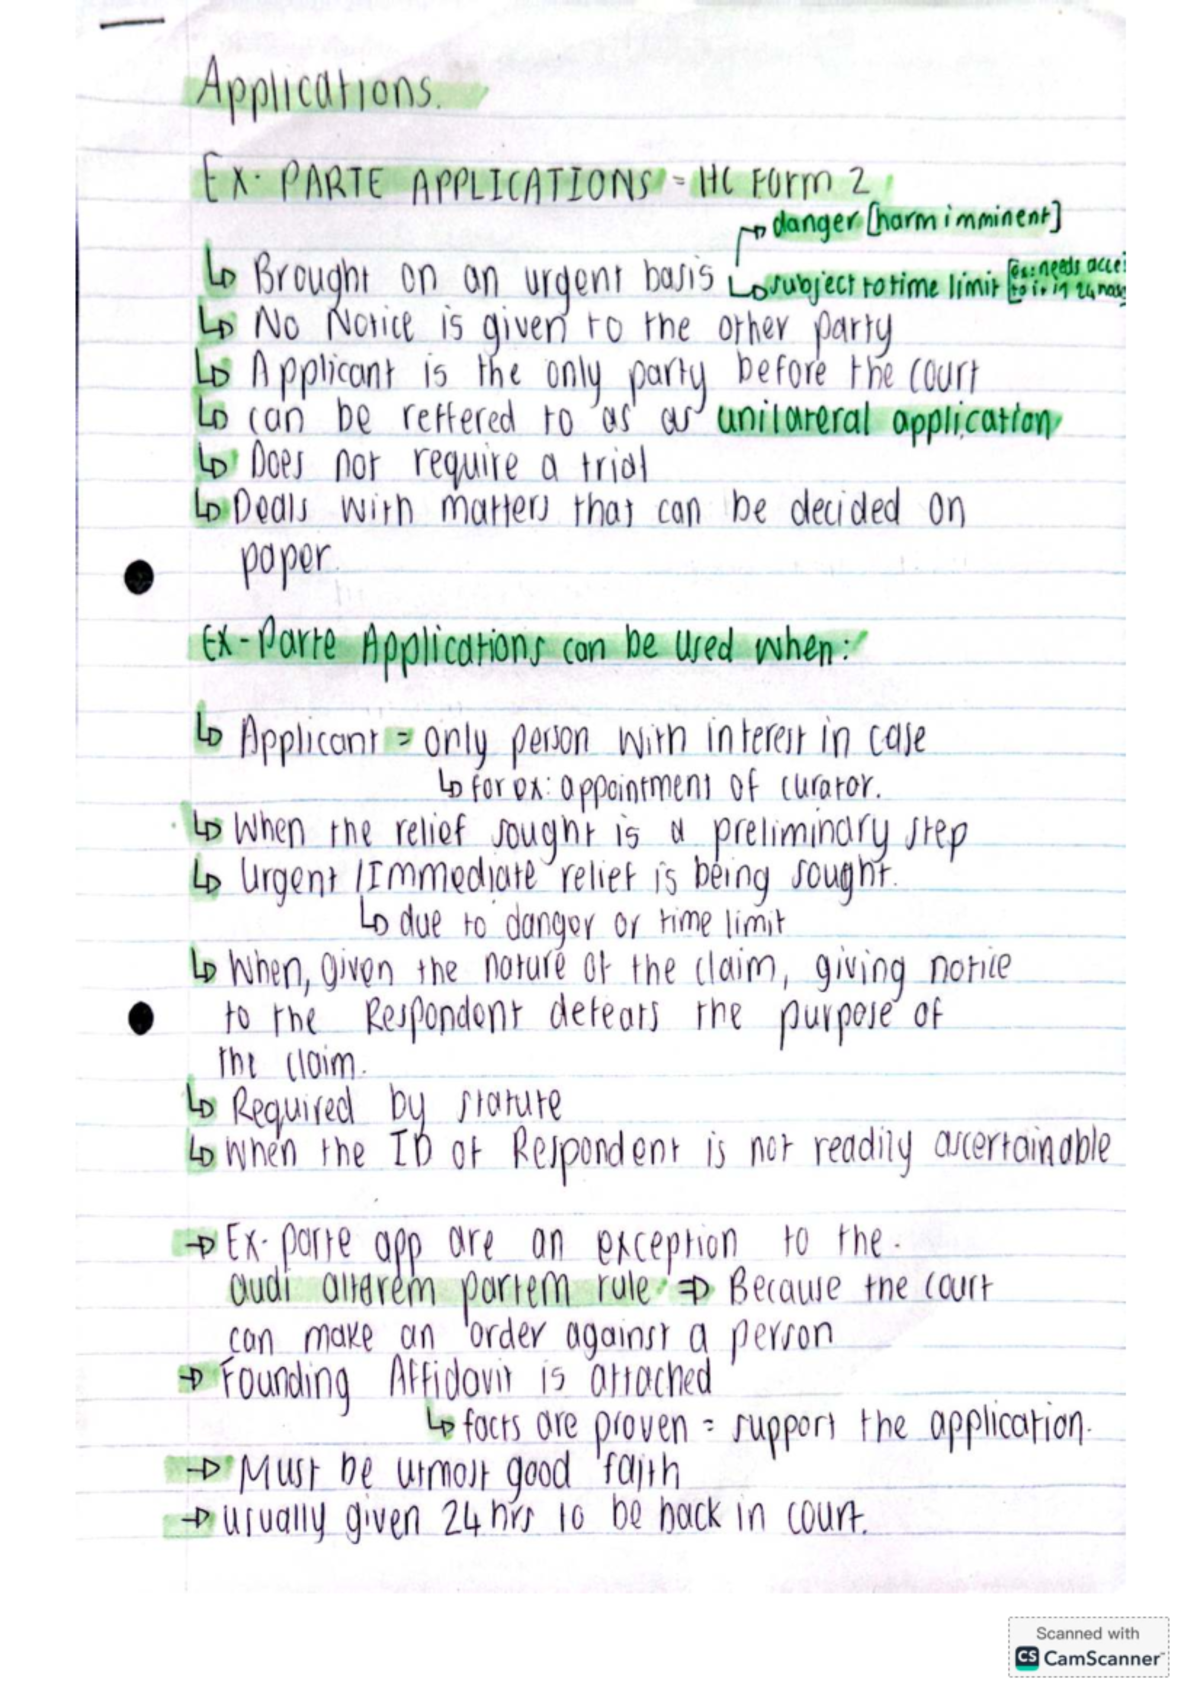 Applications.
EX-PARTE APPLICATIONS = HC FORM 2
↳ Brought on an urgent basis → danger [harm imminent]
↳ subject to time limit [ex: needs acce
to in 24
↳ No Notice is given to the other party
↳ Applicant is the only party before the court
↳ can be reffered to as as unilateral application
↳ Does not require a trial
↳ Deals with matters that can be decided on
paper.
Ex-Parte Applications can be used when:
↳ Applicant = only person with interest in case
↳ for ex: appointment of curator.
↳ When the relief sought is a preliminary step
↳ Urgent /Immediate relief is being sought.
↳ due to danger or time limit
↳ When, given the nature of the claim, giving notice
to the Respondent defeats the purpose of
the claim.
↳ Required by statute
↳ When the ID of Respondent is not readily ascertainable
→ Ex-parte app are an exception to the
audi alterem partem rule ⇒ Because the court
can make an order against a person
→ Founding Affidavit is attached
↳ facts are proven = support the application.
→ Must be utmost good faith
→ usually given 24 hrs to be back in court.
Scanned with
CS CamScanner